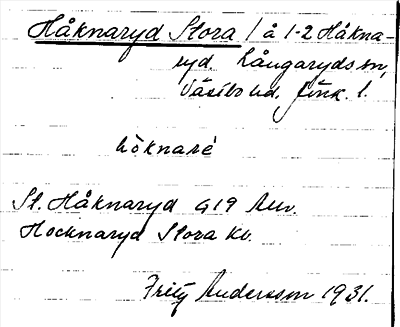 Håknaryd Stora / å 1-2 Håkna-
ryd, Långaryds sn,
Västbo hd. Jönk. l.
håknarè
St. Håknaryd G19 Auv.
Hocknaryd Stora Kv.
Fritz Andersson 1931.